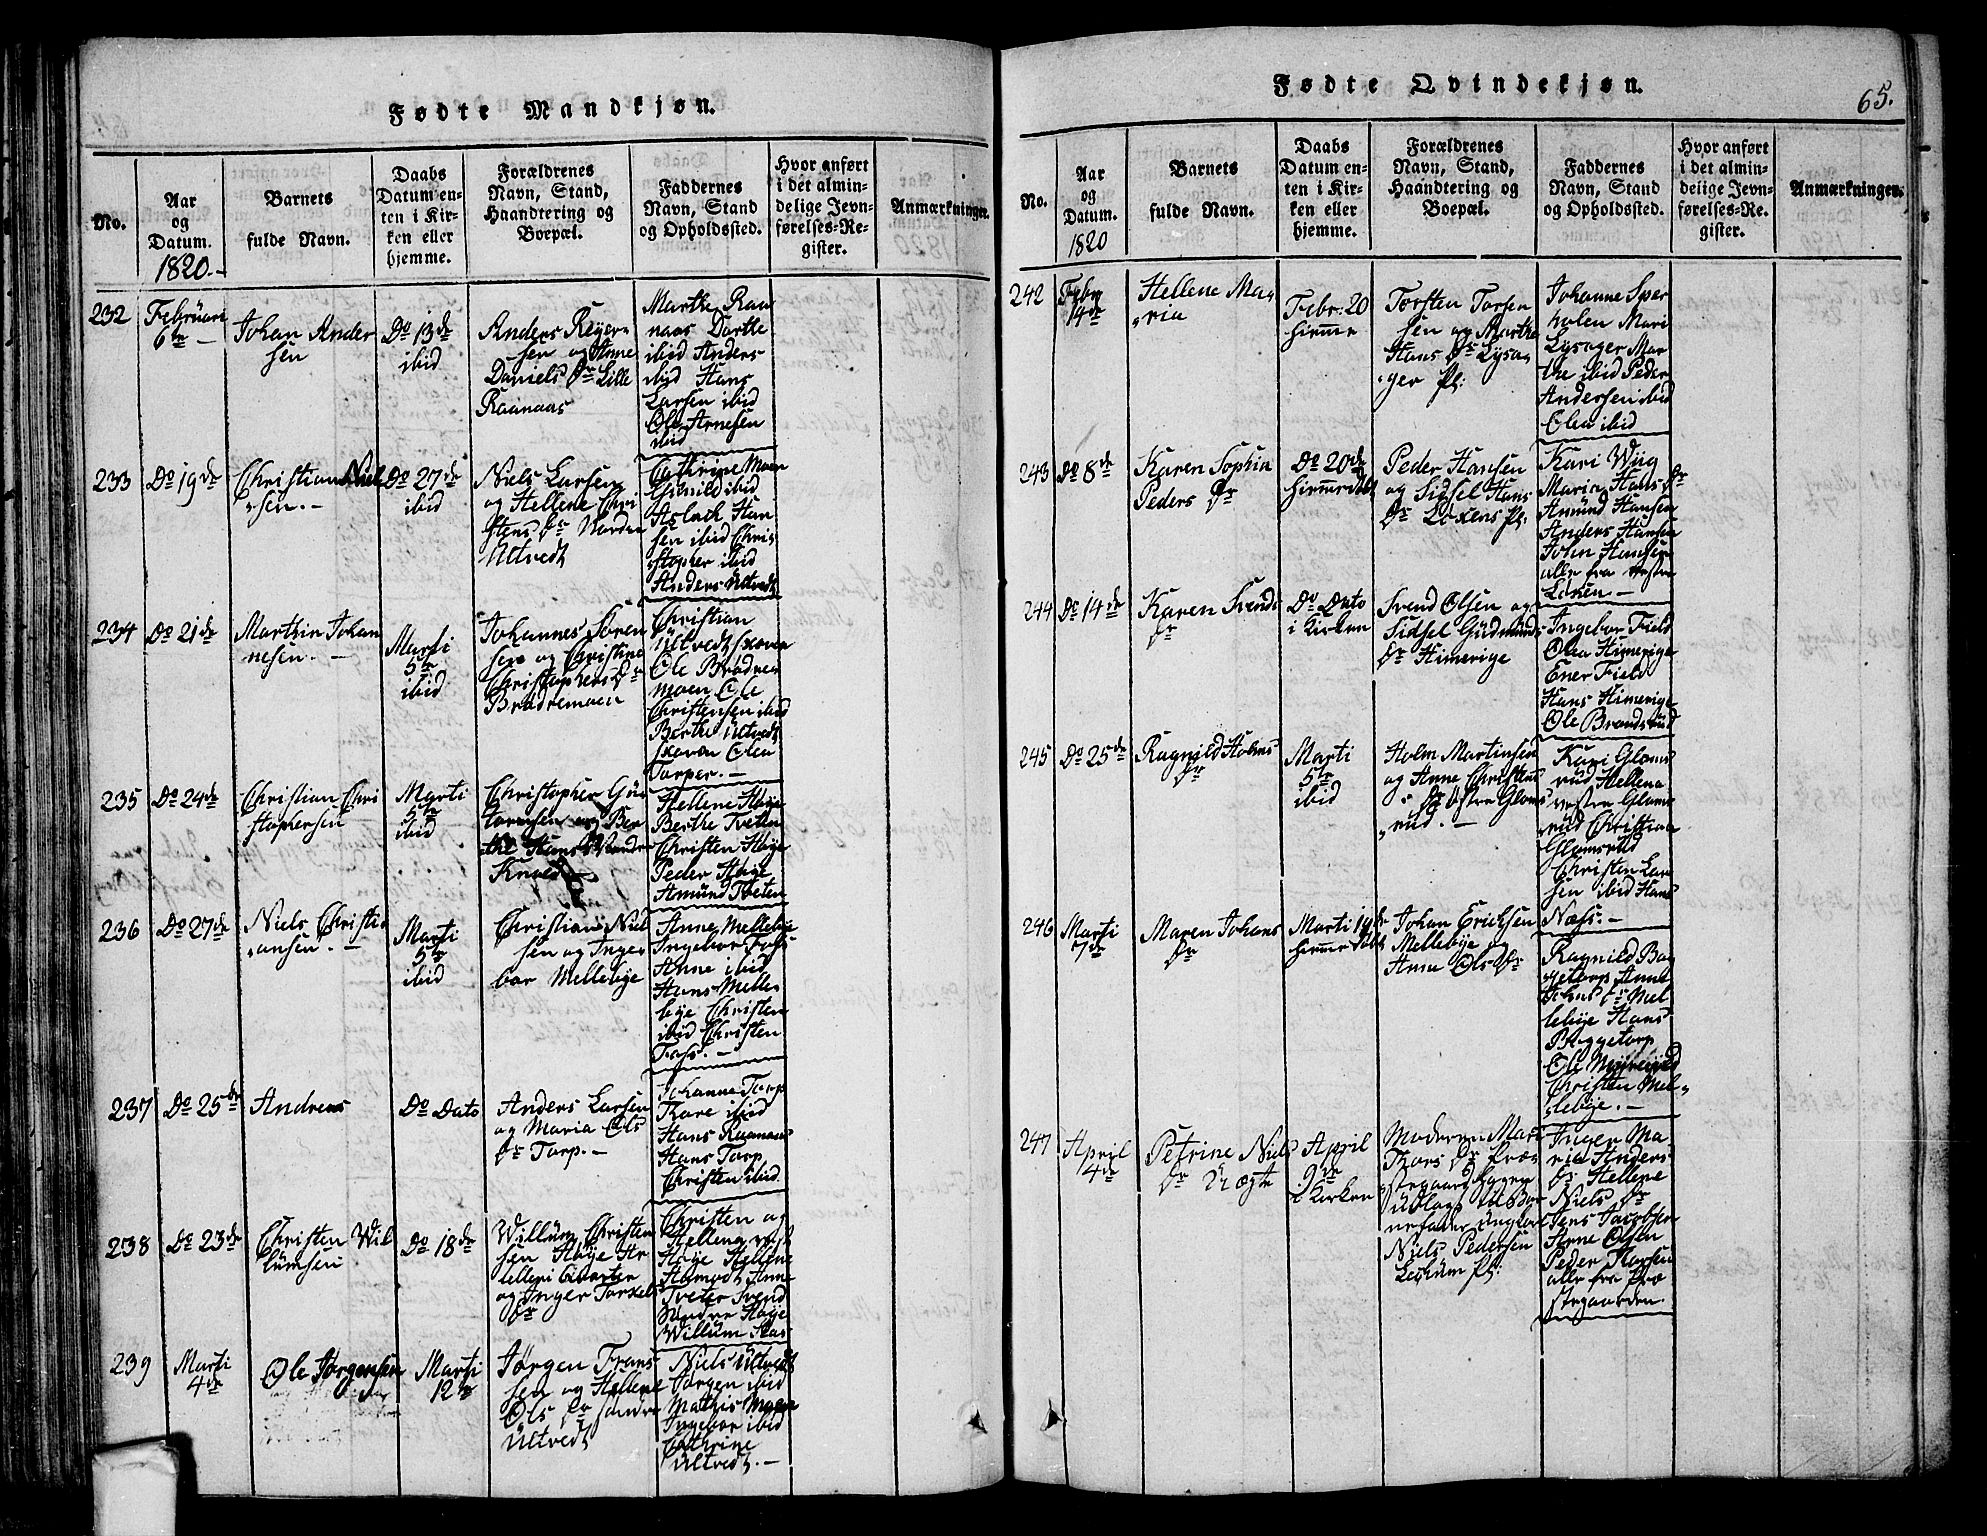 Fødte Mandkjøn.
No.
Aar
og
Datum.
1820.-
Barnets
fulde Navn.
Daabs
Datum en-
ten i Kir-
ken eller
hjemme.
Forældrenes
Navn, Stand,
Haandtering og
Boepæl.
Faddernes
Navn, Stand
og Opholdssted.
Hvor anført
i det almin-
delige Jevn-
førelses-Re-
gister.
Anmærkninger.
232
Februari
6te -
Johan Ander
sen
Do 13de
ibid
Anders Reyer-
sen og Anne
Daniels Dr Lille
Raanaas
Marthe Raa
naas Dorthe
ibid Anders
ibid Hans
Larsen ibid
Ole Arnesen
ibid
233
Do 19de
Christian Niel
sen. -
Do 27de
ibid
Niels Larsen
og Hellene Chri
stens Dr Nordre
Ultvedt
Cathrine Moen
Gunild ibid
Aslach Han
sen ibid Chri
stopher ibid
Anders Ultvedt
234
Do 21de
Marthin Johan
nesen. -
Marti
5te
ibid
Johannes Søren
sen og Christine
Christophers Dr
Brødremoen
Christian
Ultvedt skoven
Ole Brødre
moen Ole
Christensen ibid
Berthe Ultvedt
skoven Olea
Torper. -
235
Do 24de
Christian Chri
stophersen
Marti
5te
ibid
Christopher Gu
tormsen og Ber
the Hans Nordre
Knued
Hellene Høye
Berthe Tveten
Christen Høye
Peder Høye
Amund Tveten
236
Do 27de
Niels Christi
ansen. -
Marti
5te
ibid
Christian Niel
sen og Inger
bor Mellebye
Anne Mellebye
Ingebor Foss
Anne ibid
Hans Melle
bye Christen
ibid Christen
Foss. -
237
Do 25de
Andreas
Do Dato
Anders Larsen
og Maria Ols
Dr Torp. -
Johanne Torp
Kare ibid
Hans Raanaas
Hans Torp
Christen ibid
238
Do 23de
Christen Wil
lumsen
Do 18de
Willum Christen
sen Høye Ar
telleri Qvarteer
og Inger Torkels
Dr
Christen og
Hellena
Høye Hellene
Anne
Tveter Svend
Søndre Høye
Willum
239
Marti
4de
Ole Jørgensen
Marti
12te
Jørgen Frans
sen og Hellene
Ols Dr søndre
Ultvedt
Niels Ultvedt
Jørgen ibid
Mathis Moen
Ingebor ibid
Cathrine
Ultvedt. -
Fødte Qvindekjøn.
65.
No.
Aar
og
Datum.
1820
Barnets
fulde Navn.
Daabs
Datum en-
ten i Kir-
ken eller
hjemme.
Forældrenes
Navn, Stand,
Haandtering og
Boepæl.
Faddernes
Navn, Stand
og Opholdssted.
Hvor anført
i det almin-
delige Jevn-
førelses-Re-
gister.
Anmærkninger.
242
Febr
14de
Hellene Ma-
ria
Febr: 20
hiemme
Torsten Torsen
sen og Marthe
Hans Dr Lysa
ger Pl:
Johanne Sper
holen Mari
Lysager Mar
the ibid Peder
Andersen ibid
Olea ibid
243
Do 8de
Karen Sophia
Peders Dr
Do 20de
hiemmedøbt
Peder Hansen
og Sidsel Hans
Dr Løkens Pl:
Kari Wiig
Maria Hans Dr
Amund Hansen
Anders Hansen
John Hansen
alle fra vestre
Løken. -
244
Do 14de
Karen Svends
Dr
Do Dato
i Kirken
Svend Olsen og
Sidsel Gudmunds
Dr Himerige
Ingebor Field
Olea Himerige
Ener Field
Hans Himerige
Ole Brandsrud
245
Do 25de
Ragnild Holms
Dr
Marti
5te
ibid
Holm Martinsen
og Anne Christens
Dr østre Gloms
rud. -
Kari Gloms
rud Hellena
vestre Gloms
rud Christian
Glomsrud
Christen Lar
sen ibid Hans
Næss. -
246
Marti
7de
Maren Johans
Dr
Marti 19de
hiemmedøbt
Johan Erichsen
Mellebye og
Anne Ols Dr
Ragnild Bøg
getorp Anne
Johns Dr Mel
lebye Hans
Bøggetorp
Ole
Christen Mel
lebye. -
247
April
4de
Petrine Niels
Dr Uægte
April
9de
i Kirken
Moderen Mari
Thors Dr Præs
stegaards
udlagt til Bar
nefader ungkar
Niels Pedersen
Lechum Pl:
Inger Ma
ria Anders
Dr Hellene
Niels Dr
Jens Jacobsen
Anne Olsen
Peder Larsen
alle fra Præ
stegaarden.